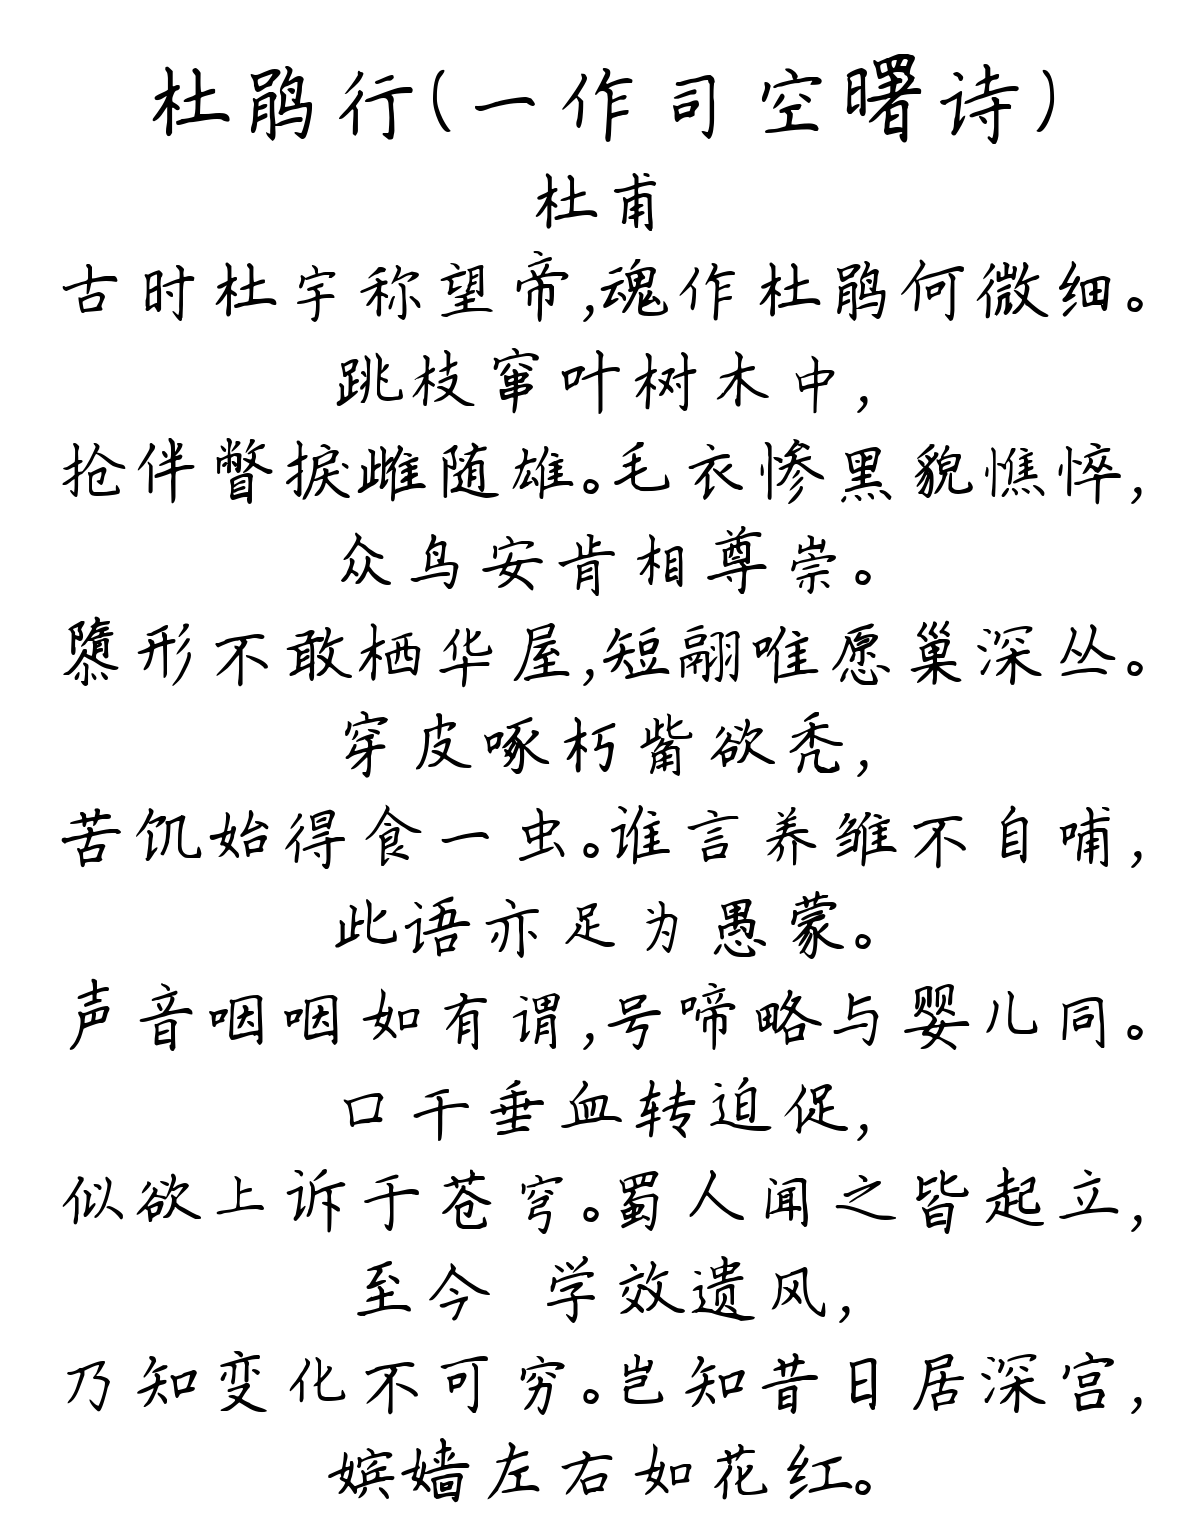 杜鹃行(一作司空曙诗)
杜甫
古时杜宇称望帝,魂作杜鹃何微细。
跳枝窜叶树木中,
抢佯瞥捩雌随雄。毛衣惨黑貌憔悴,
众鸟安肯相尊崇。
隳形不敢栖华屋,短翮唯愿巢深丛。
穿皮啄朽觜欲秃,
苦饥始得食一虫。谁言养雏不自哺,
此语亦足为愚蒙。
声音咽咽如有谓,号啼略与婴儿同。
口干垂血转迫促,
似欲上诉于苍穹。蜀人闻之皆起立,
至今 学效遗风,
乃知变化不可穷。岂知昔日居深宫,
嫔嫱左右如花红。